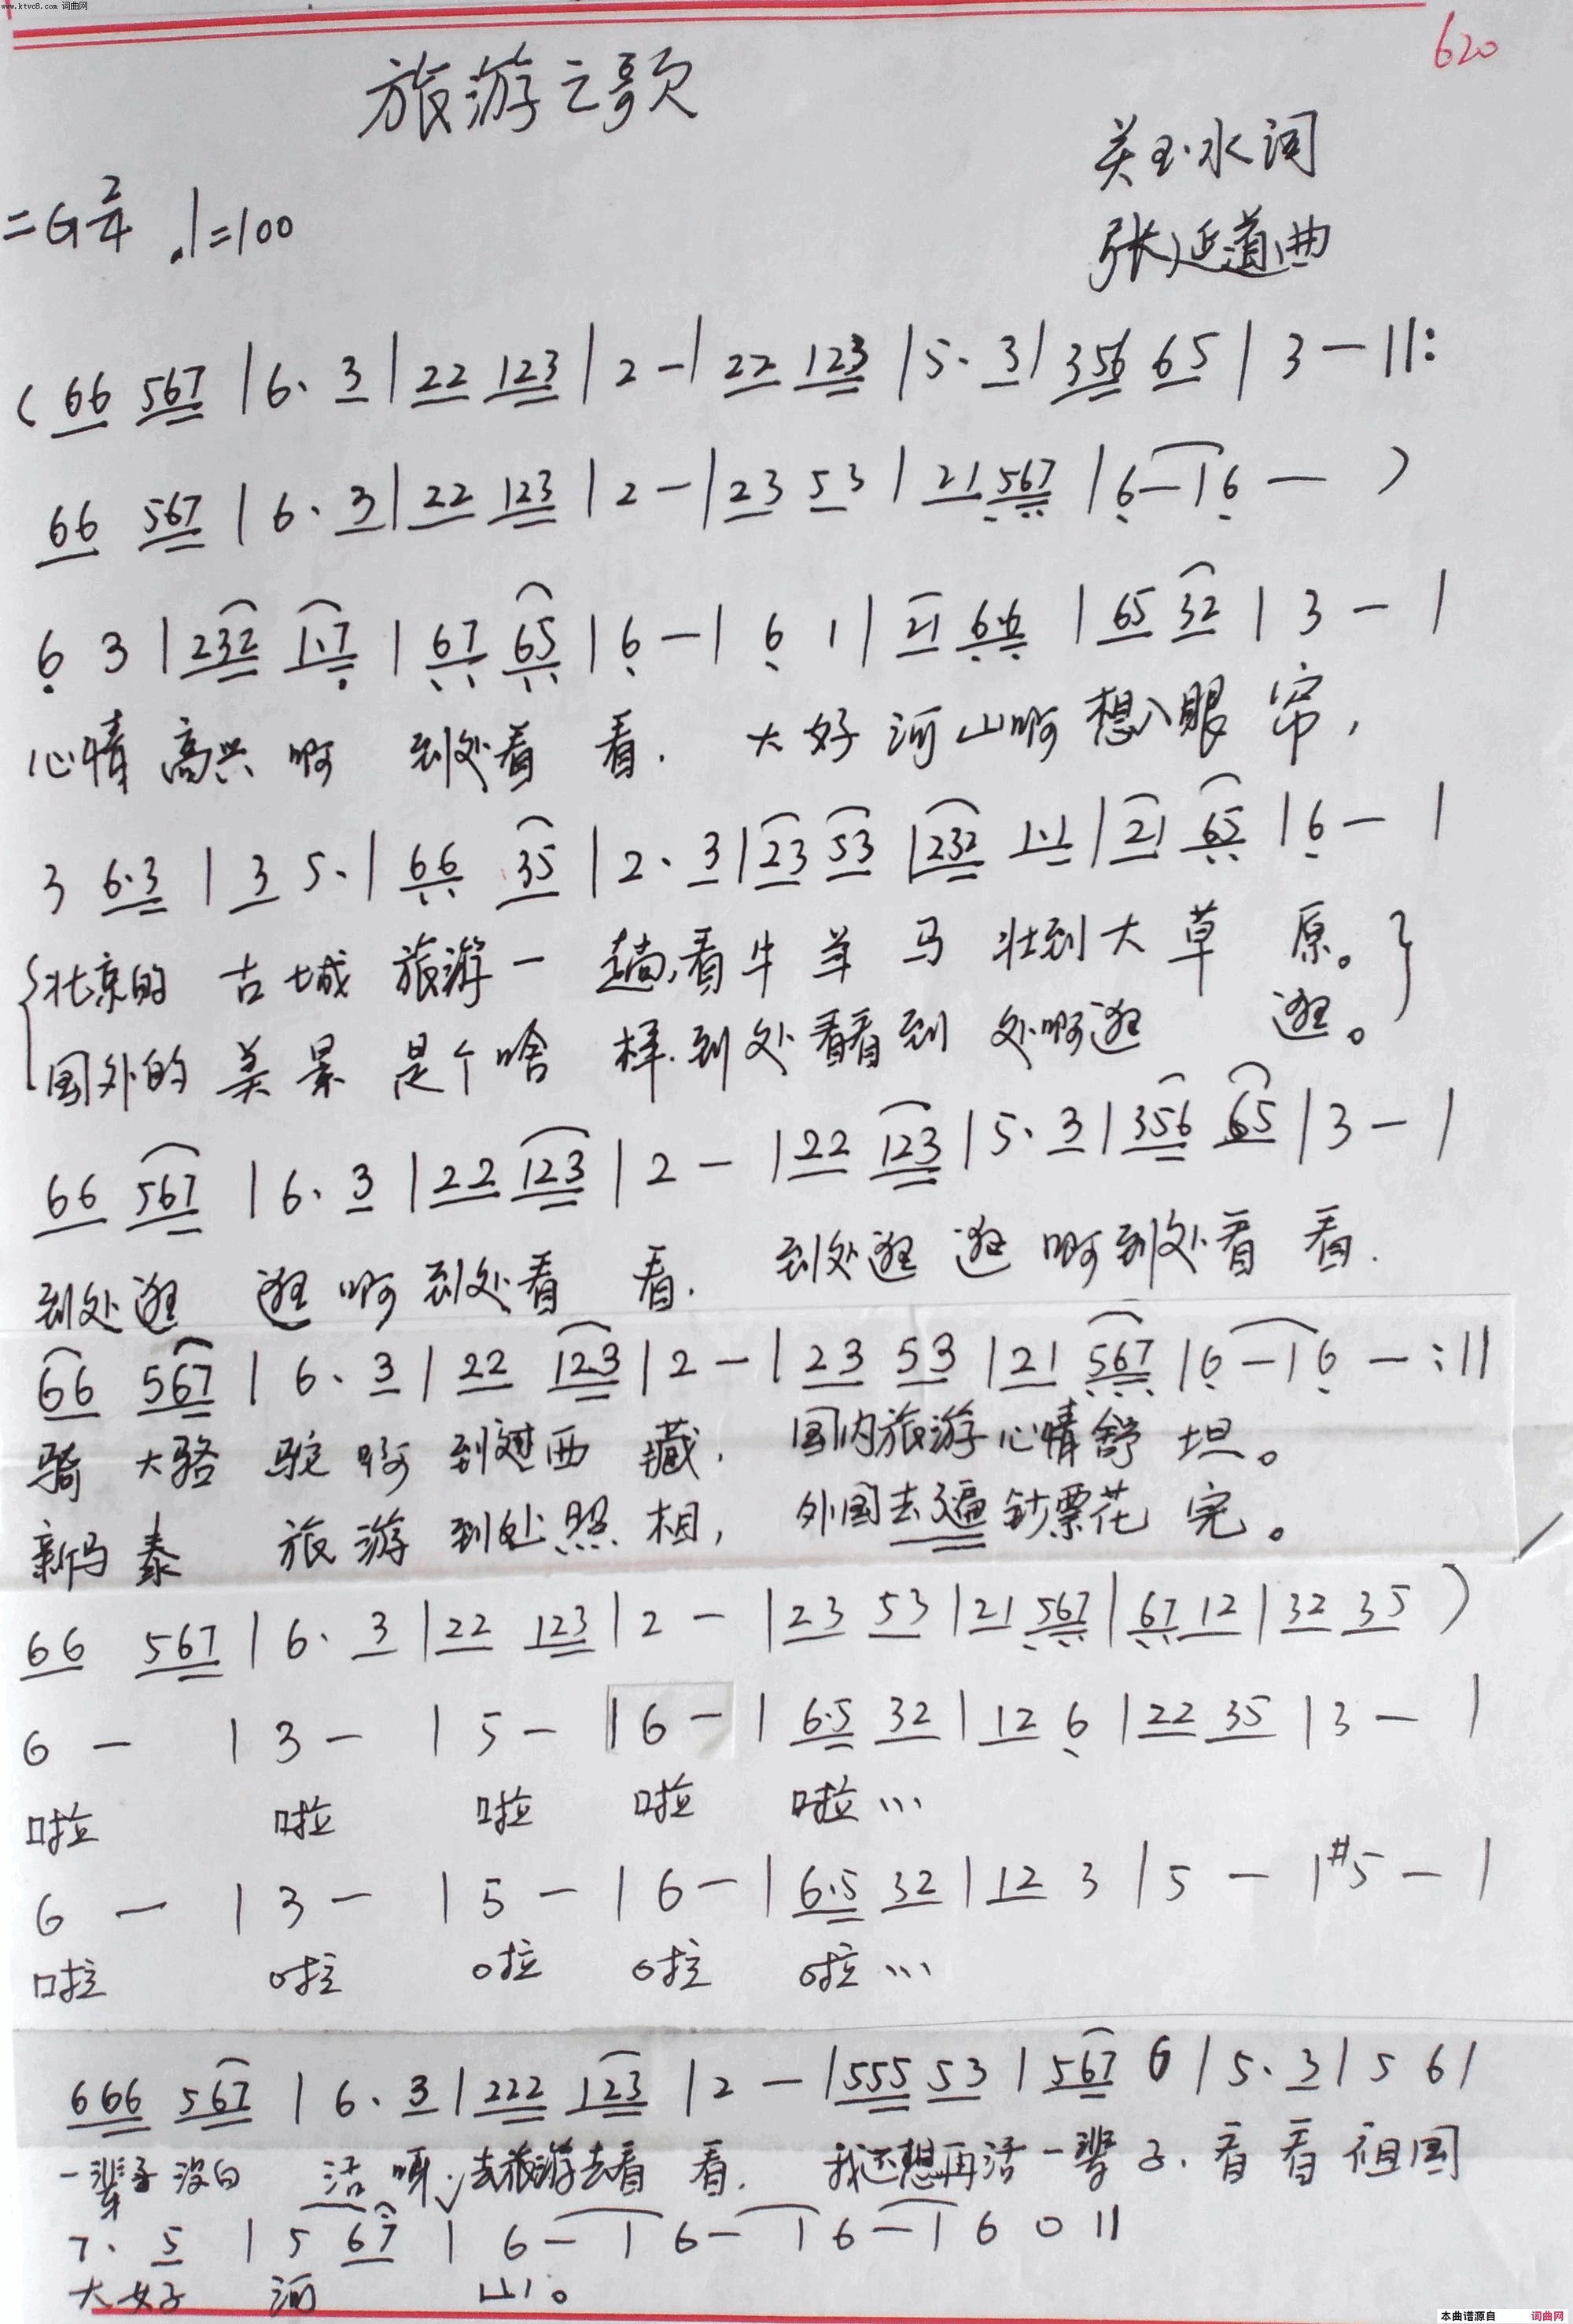 www.ktvc8.com 词曲网
620
旅游之歌
关玉水词
=G 2/4 ♩=100
张延道曲
( 66 567 | 6· 3 | 22 123 | 2 - | 22 123 | 5· 3 | 356 65 | 3 - ||:
66 567 | 6· 3 | 22 123 | 2 - | 23 53 | 21 567 | 6 - | 6 - )
6 3 | 232 1·7 | 67 65 | 6 - | 6 1 | 21 6·6 | 65 32 | 3 - |
心情高兴啊 到处看看. 大好河山啊想入眼帘,
3 6·3 | 3 5· | 66 35 | 2· 3 | 23 53 | 232 1·1 | 21 65 | 6 - |
北京的古城旅游一趟,看牛羊马壮到大草原。
国外的美景是个啥样.到处看看到处啊逛逛。
66 567 | 6· 3 | 22 123 | 2 - | 22 123 | 5· 3 | 356 65 | 3 - |
到处逛逛啊到处看看. 到处逛逛啊到处看看.
66 567 | 6· 3 | 22 123 | 2 - | 23 53 | 21 567 | 6 - | 6 - :||
骑大骆驼啊到过西藏. 国内旅游心情舒坦。
新马泰旅游到处照相, 外国去逼钞票花完。
66 567 | 6· 3 | 22 123 | 2 - | 23 53 | 21 567 | 67 12 | 32 35 )
6 - | 3 - | 5 - | 6 - | 6·5 32 | 12 6 | 22 35 | 3 - |
啦 啦 啦 啦 啦…
6 - | 3 - | 5 - | 6 - | 6·5 32 | 12 3 | 5 - | #5 - |
啦 啦 啦 啦 啦…
666 567 | 6· 3 | 222 123 | 2 - | 555 53 | 567 6 | 5· 3 | 5 6 |
一辈子没白活啊去旅游去看看. 我还想再活一辈子.看看祖国
7· 5 | 5 67 | 6 - | 6 - | 6 - | 6 0 ||
大好河山。
本曲谱源自 词曲网